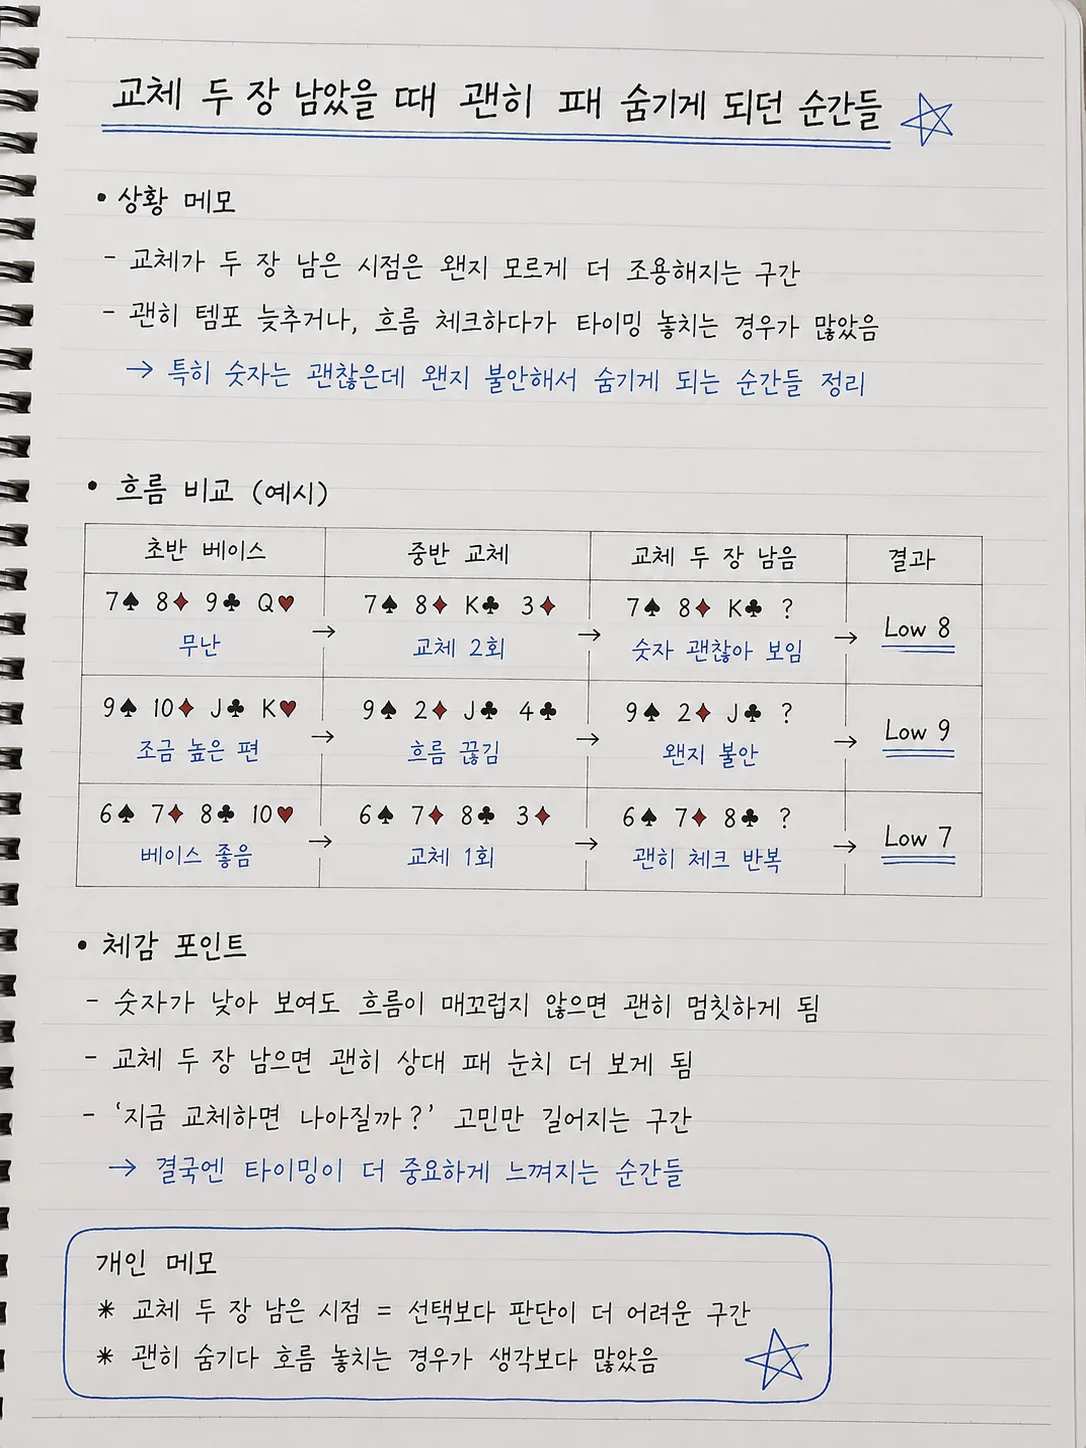 교체 두 장 남았을 때 괜히 패 숨기게 되던 순간들
• 상황 메모
- 교체가 두 장 남은 시점은 왠지 모르게 더 조용해지는 구간
- 괜히 템포 늦추거나, 흐름 체크하다가 타이밍 놓치는 경우가 많았음
→ 특히 숫자는 괜찮은데 왠지 불안해서 숨기게 되는 순간들 정리
• 흐름 비교 (예시)
초반 베이스 중반 교체 교체 두 장 남음 결과
7♠ 8♦ 9♣ Q♥ → 7♠ 8♦ K♣ 3♦ → 7♠ 8♦ K♣ ? → Low 8
무난 교체 2회 숫자 괜찮아 보임
9♠ 10♦ J♣ K♥ → 9♠ 2♦ J♣ 4♣ → 9♠ 2♦ J♣ ? → Low 9
조금 높은 편 흐름 끊김 왠지 불안
6♠ 7♦ 8♣ 10♥ → 6♠ 7♦ 8♣ 3♦ → 6♠ 7♦ 8♣ ? → Low 7
베이스 좋음 교체 1회 괜히 체크 반복
• 체감 포인트
- 숫자가 낮아 보여도 흐름이 매끄럽지 않으면 괜히 멈칫하게 됨
- 교체 두 장 남으면 괜히 상대 패 눈치 더 보게 됨
- ‘지금 교체하면 나아질까?’ 고민만 길어지는 구간
→ 결국엔 타이밍이 더 중요하게 느껴지는 순간들
개인 메모
* 교체 두 장 남은 시점 = 선택보다 판단이 더 어려운 구간
* 괜히 숨기다 흐름 놓치는 경우가 생각보다 많았음